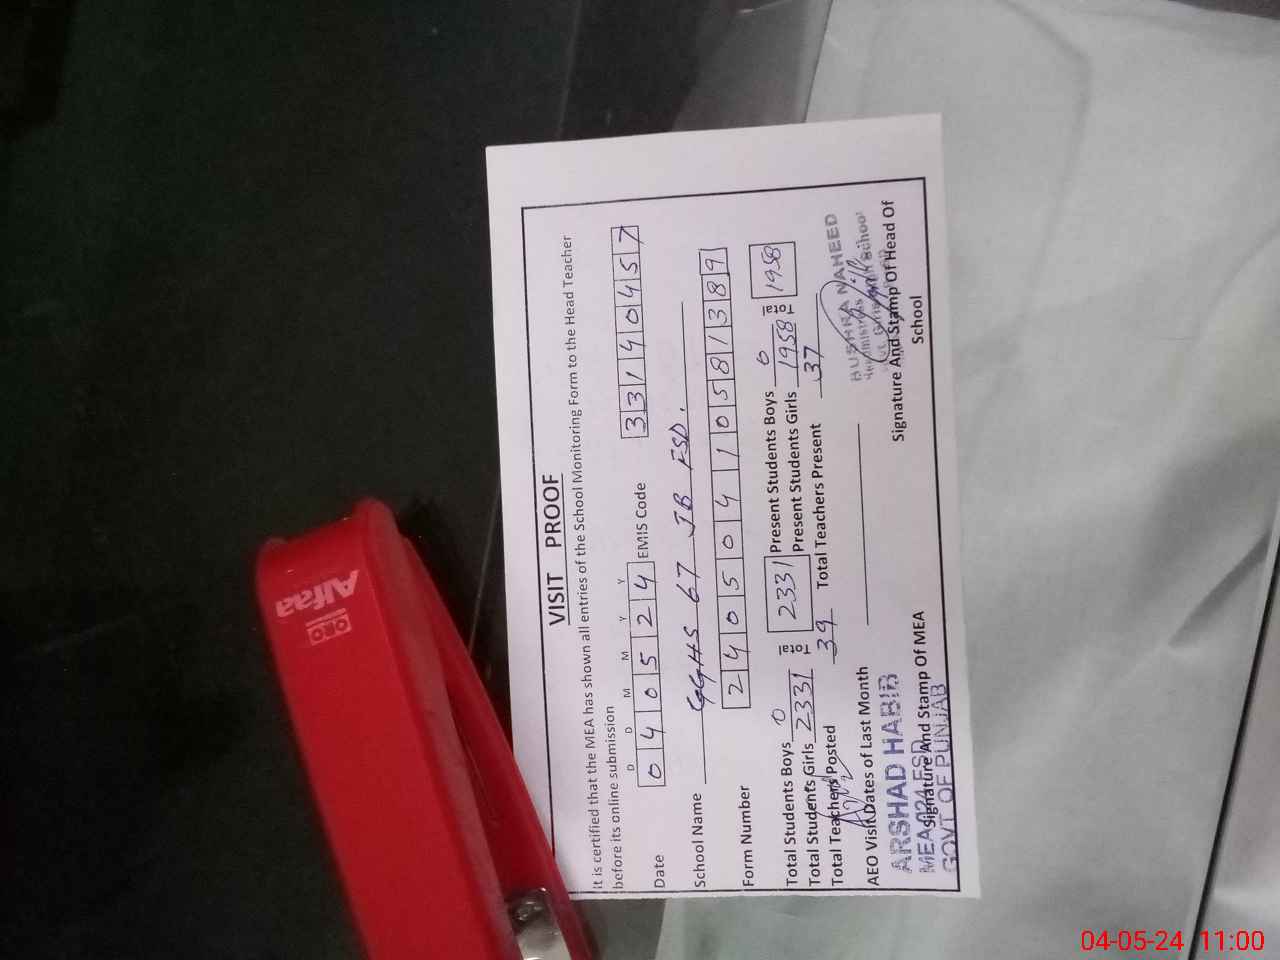 VISIT PROOF
It is certified that the MEA has shown all entries of the School Monitoring Form to the Head Teacher
before its online submission
D D M M Y Y
Date 0 4 0 5 2 4 EMIS Code 3 3 1 4 0 4 5 7
School Name GGHS 67 JB FSD.
Form Number 2 4 0 5 0 4 1 1 0 5 8 1 3 8 9
Total Students Boys 0 Present Students Boys 0
Total Students Girls 2331 Total 2331 Present Students Girls 1958 Total 1958
Total Teachers Posted 39 Total Teachers Present 37
AEO Visit Dates of Last Month
ARSHAD HABIB
MEA 024 FSD
GOVT OF PUNJAB
Signature And Stamp Of MEA
BUSHRA NAHEED
School
Signature And Stamp Of Head Of
School
ORO
Alfaa
04-05-24 11:00